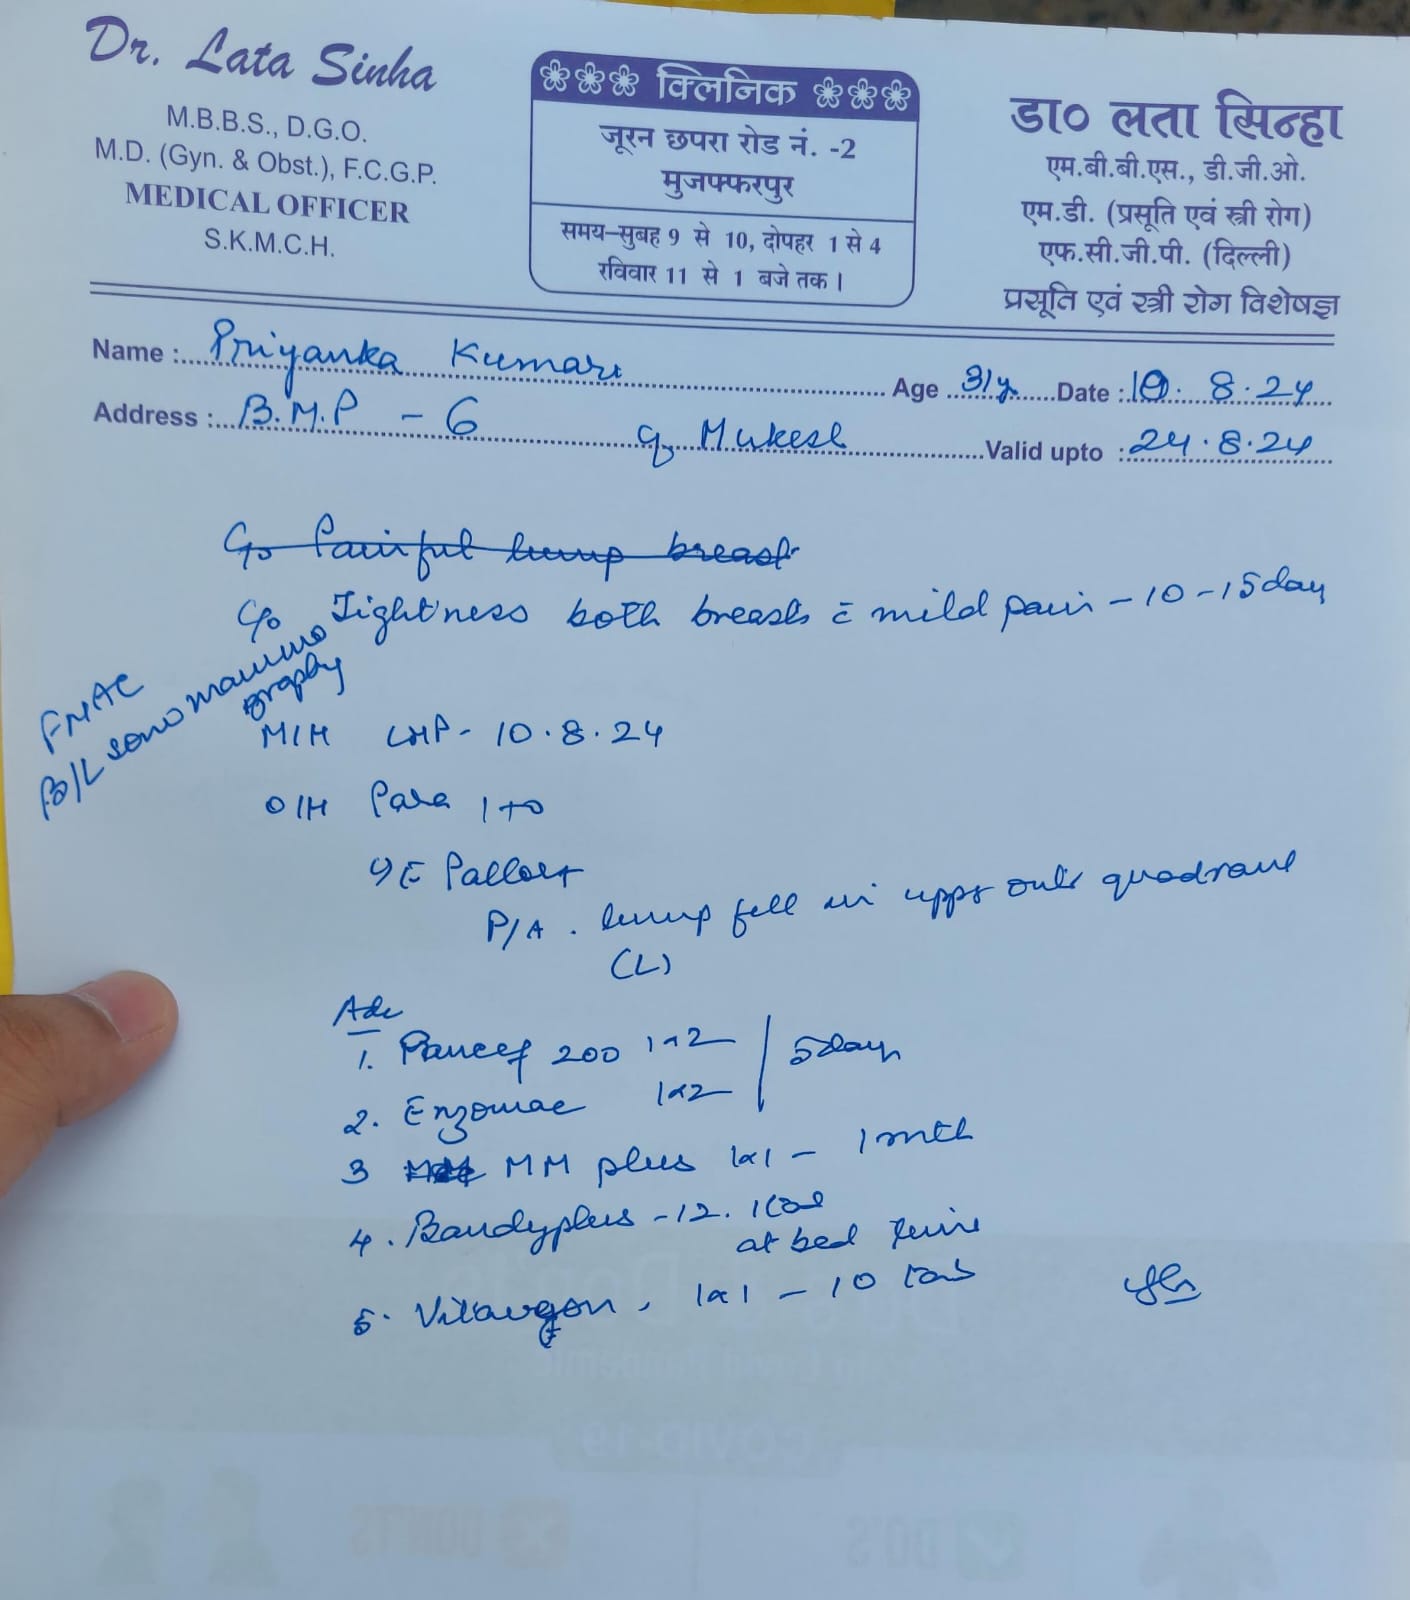 Dr. Lata Sinha
M.B.B.S., D.G.O.
M.D. (Gyn. & Obst.), F.C.G.P.
MEDICAL OFFICER
S.K.M.C.H.
क्लिनिक
जूरन छपरा रोड नं. -2
मुजफ्फरपुर
समय-सुबह 9 से 10, दोपहर 1 से 4
रविवार 11 से 1 बजे तक।
डा० लता सिन्हा
एम.बी.बी.एस., डी.जी.ओ.
एम.डी. (प्रसूति एवं स्त्री रोग)
एफ.सी.जी.पी. (दिल्ली)
प्रसूति एवं स्त्री रोग विशेषज्ञ
Name : Priyanka Kumari Age 31y Date : 10. 8.24
Address : B.M.P - 6 Mukesh Valid upto : 24.8.24
C/o Painful lump breast
C/o Tightness both breasts c̄ mild pain - 10-15 day
FNAC
B/L sono mammo
graphy
M/H LMP - 10.8.24
O/H Para 1+0
O/E Pallor+
P/A. lump fell in upper outer quadrant
(L)
Adv
1. Pancef 200 1x2 5 day
2. Enzomac 1x2
3 MM plus 1x1 - 1 mth
4. Bandyplus - 12. 1 tab
at bed time
5. 1x1 - 10 tab
DO'S
DON'TS
COVID-19